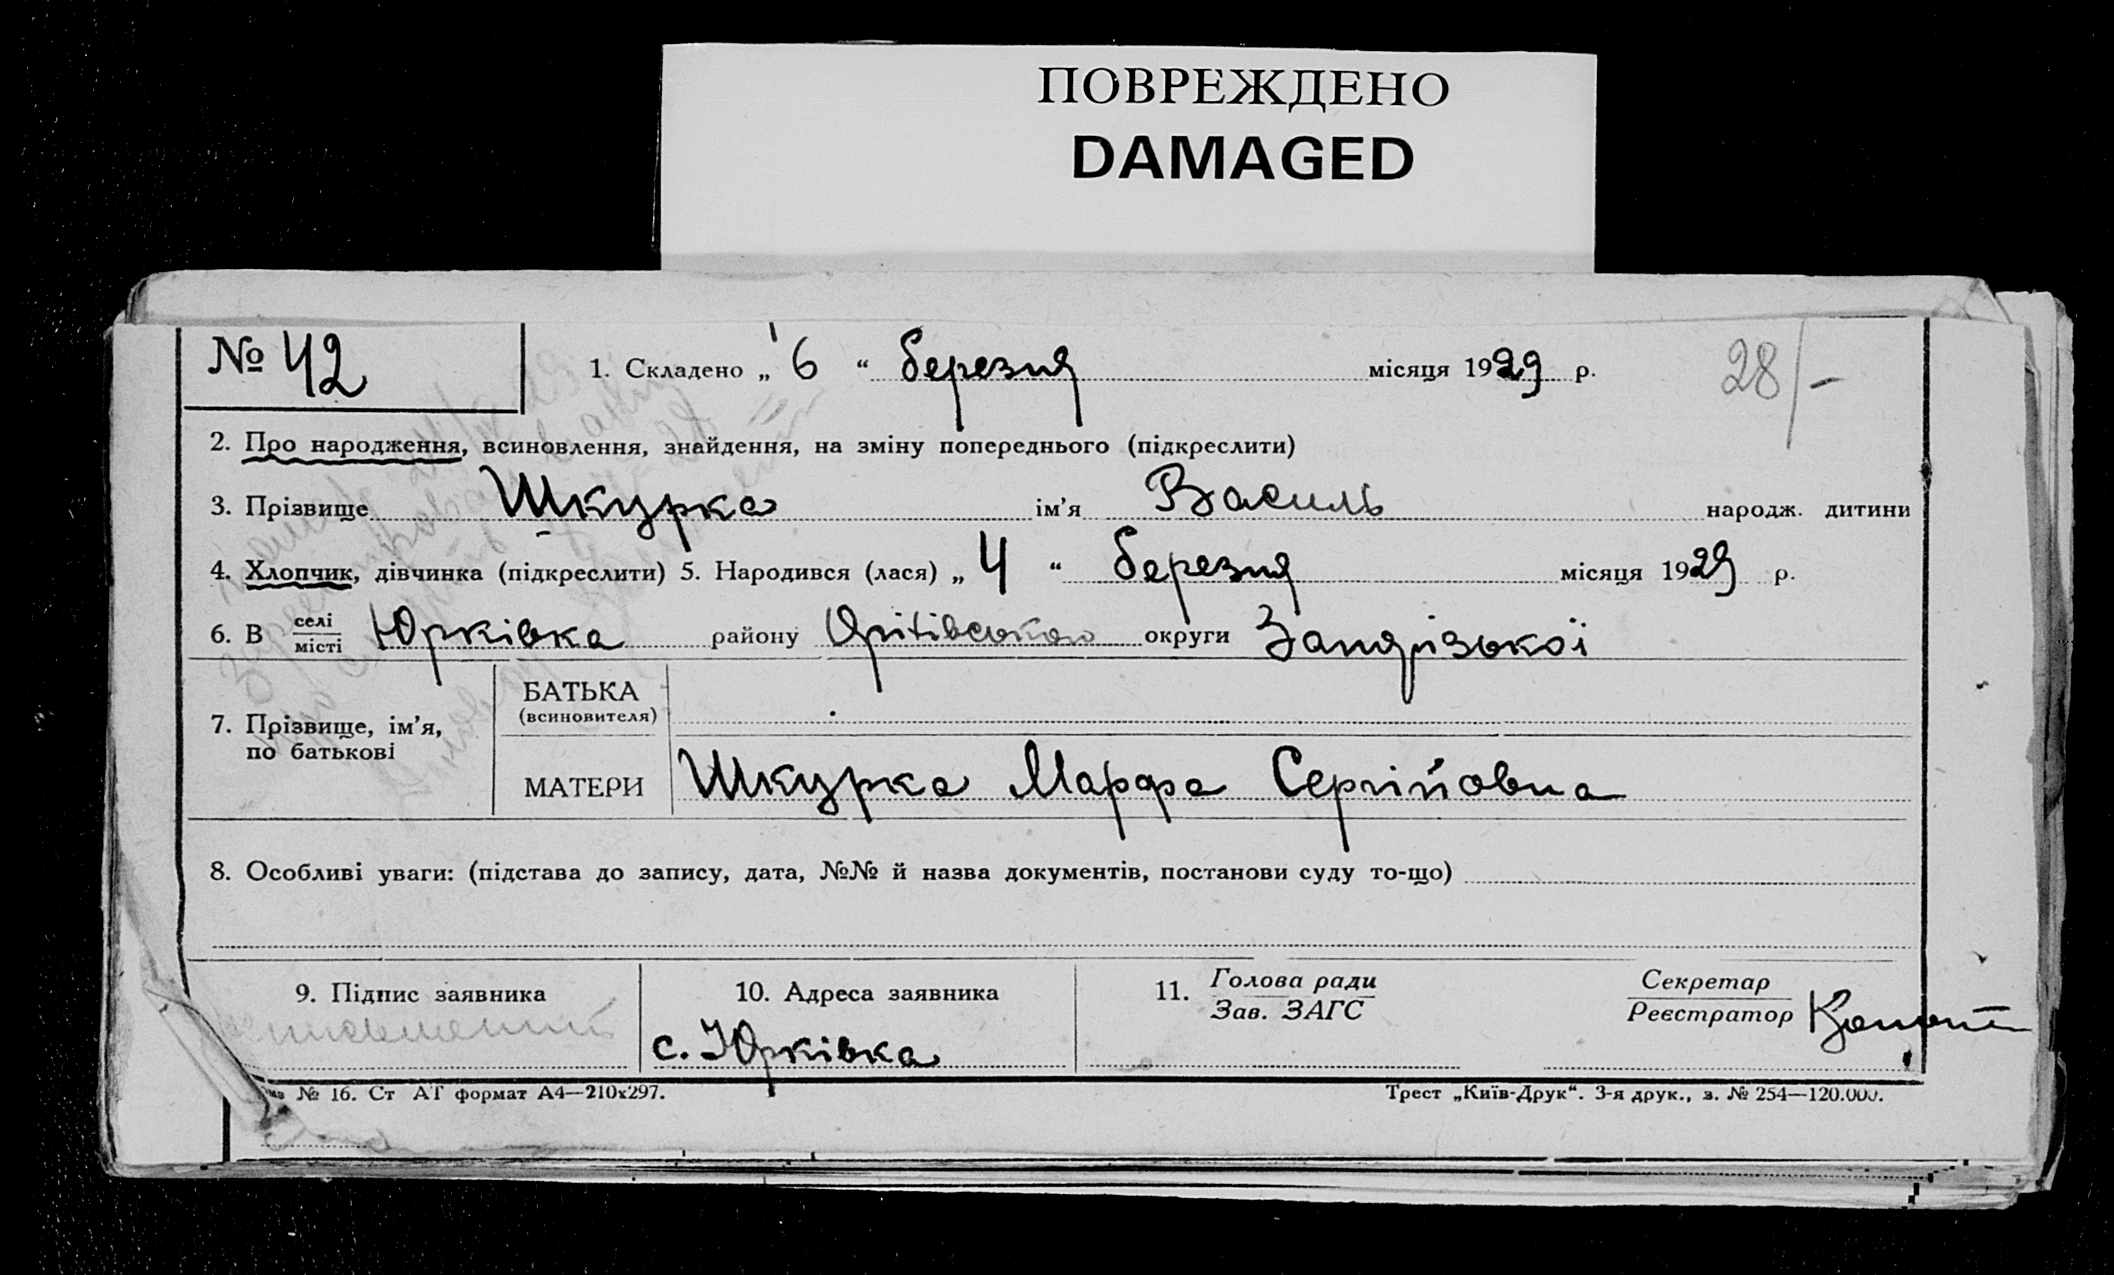 ПОВРЕЖДЕНО
DAMAGED
№ 42
1. Складено „ 6 “ березня місяця 1929 р.
28/-
2. Про народження, всиновлення, знайдення, на зміну попереднього (підкреслити)
3. Прізвище Шкурка ім’я Василь народж. дитини
4. Хлопчик, дівчинка (підкреслити) 5. Народився (лася) „ 4 “ березня місяця 1929 р.
6. В селі
місті Юрківка району округи Запорізької
7. Прізвище, ім’я,
по батькові
БАТЬКА
(всиновителя)
МАТЕРИ Шкурка Марфа Сергійовна
8. Особливі уваги: (підстава до запису, дата, №№ й назва документів, постанови суду то-що)
9. Підпис заявника
10. Адреса заявника
с. Юрківка
11. Голова ради
Зав. ЗАГС
Секретар
Реєстратор
№ 16. Ст АТ формат А4—210х297.
Трест „Київ-Друк“. 3-я друк., з. № 254—120.000.